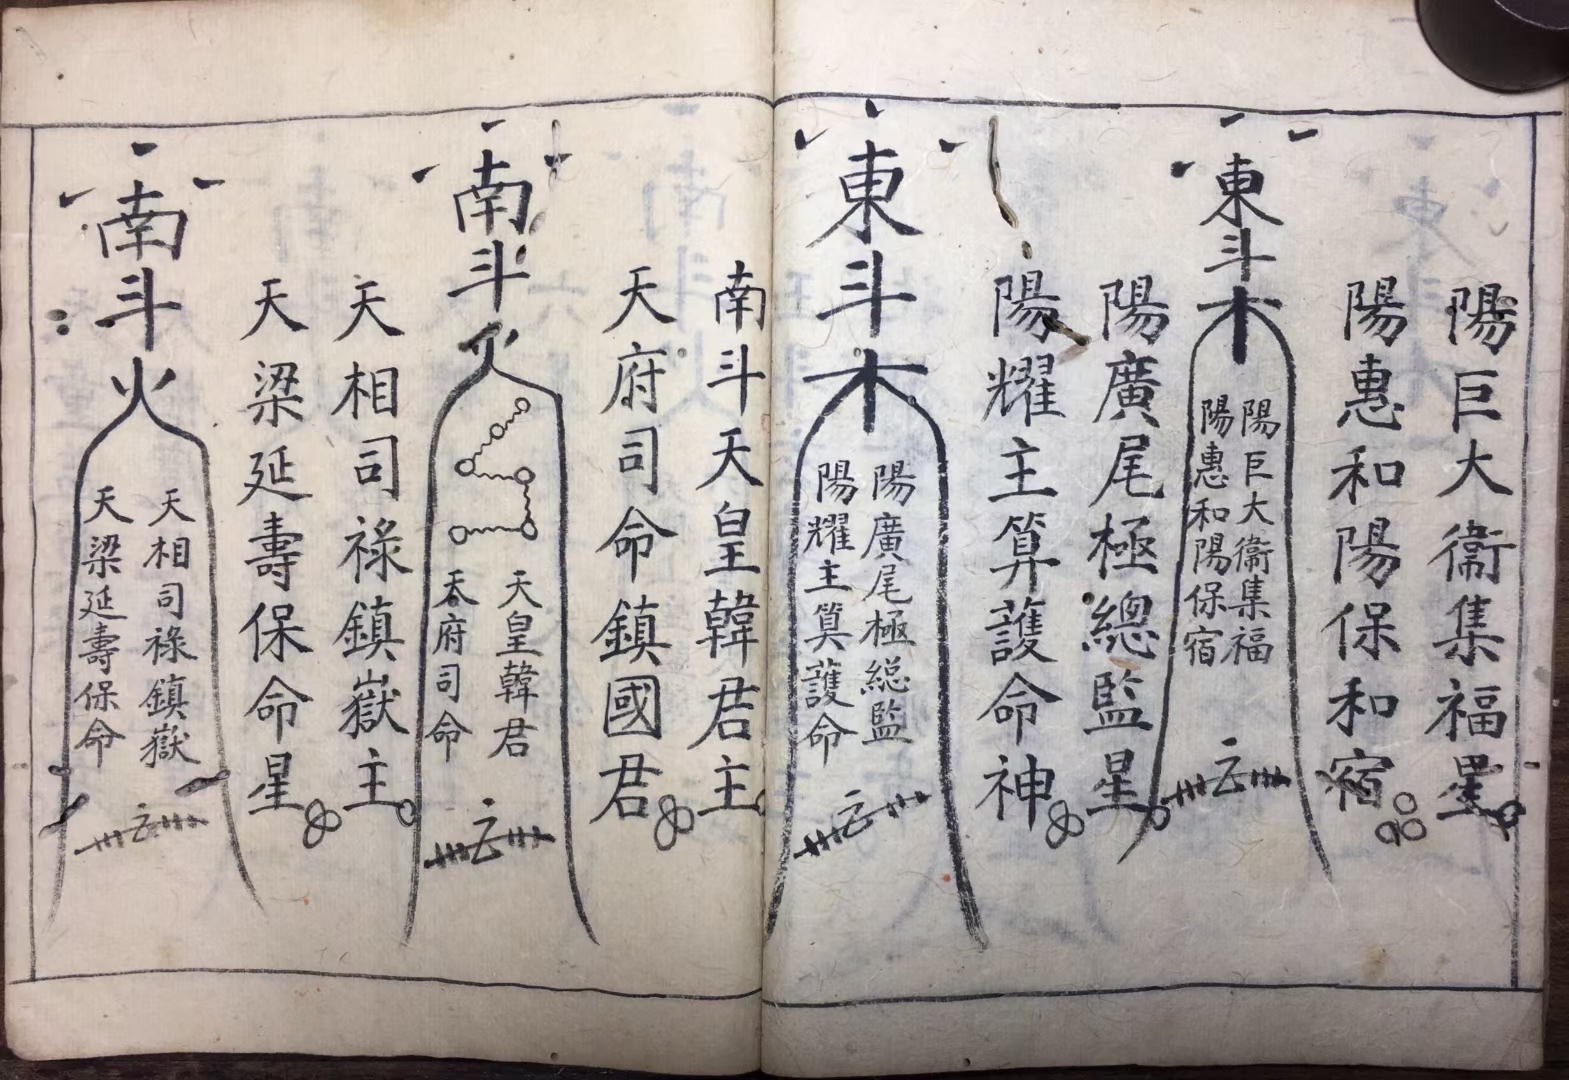 陽巨大衞集福星
陽惠和陽保和宿
東斗木
陽巨大衞集福
陽惠和陽保宿
陽廣尾極總監星
陽耀主算護命神
東斗木
陽廣尾極総監
陽耀主算護命
南斗天皇韓君主
天府司命鎮國君
南斗火
天皇韓君
天府司命
天相司祿鎮嶽主
天梁延壽保命星
南斗火
天相司祿鎮嶽
天梁延壽保命